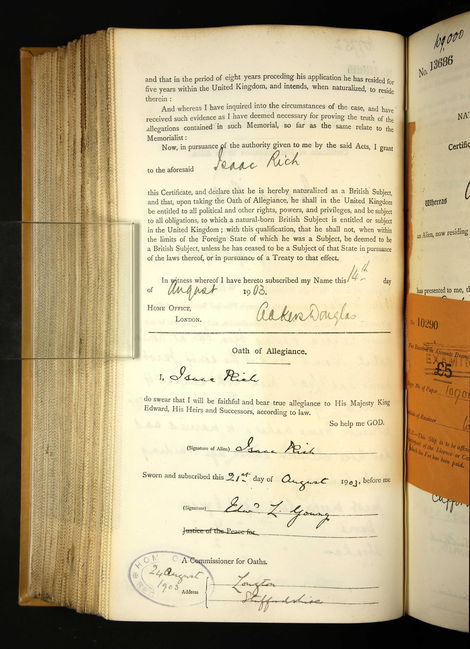 and that in the period of eight years preceding his application he has resided for
five years within the United Kingdom, and intends, when naturalized, to reside
therein :
And whereas I have inquired into the circumstances of the case, and have
received such evidence as I have deemed necessary for proving the truth of the
allegations contained in such Memorial, so far as the same relate to the
Memorialist :
Now, in pursuance of the authority given to me by the said Acts, I grant
to the aforesaid Isaac Rich
this Certificate, and declare that he is hereby naturalized as a British Subject,
and that, upon taking the Oath of Allegiance, he shall in the United Kingdom
be entitled to all political and other rights, powers, and privileges, and be subject
to all obligations, to which a natural-born British Subject is entitled or subject
in the United Kingdom ; with this qualification, that he shall not, when within
the limits of the Foreign State of which he was a Subject, be deemed to be
a British Subject, unless he has ceased to be a Subject of that State in pursuance
of the laws thereof, or in pursuance of a Treaty to that effect.
In witness whereof I have hereto subscribed my Name this 14th day
of August 1903.
HOME OFFICE,
LONDON.
A Akers Douglas
Oath of Allegiance.
I, Isaac Rich
do swear that I will be faithful and bear true allegiance to His Majesty King
Edward, His Heirs and Successors, according to law.
So help me GOD.
(Signature of Alien) Isaac Rich
Sworn and subscribed this 21st day of August 1903, before me
(Signature) Edwd L. Young
Justice of the Peace for
A Commissioner for Oaths.
HOME O
24 August
1903
Address Longton
Staffordshire
109,000
No. 13686
NA
Certific
Whereas
an Alien, now residing
has presented to me, th
No 10290
£5